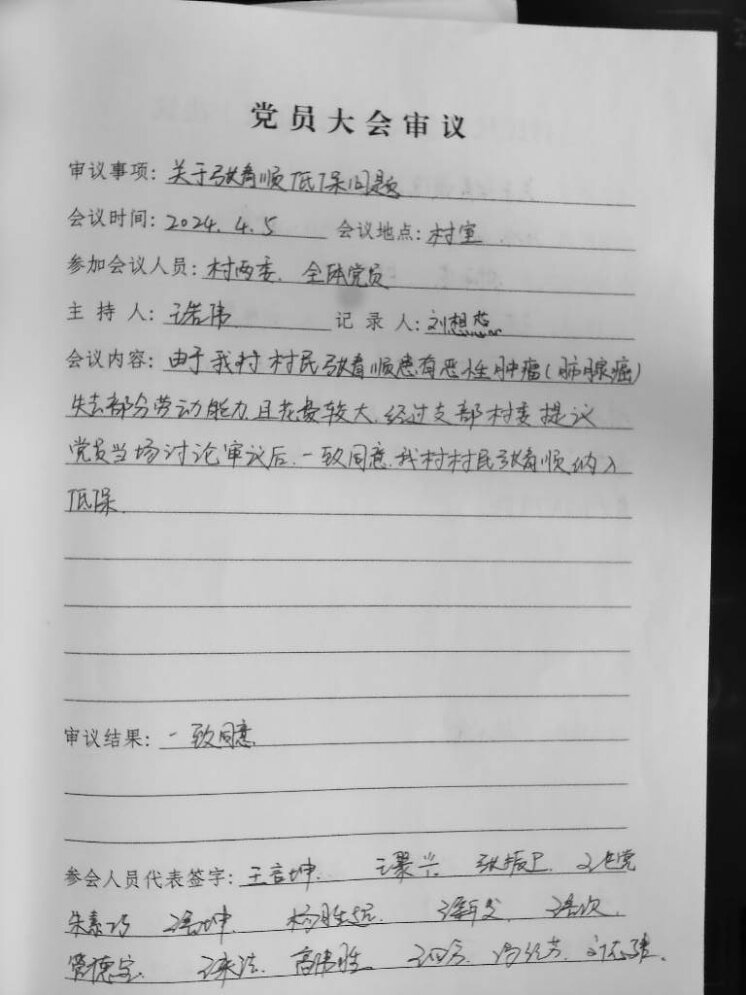 党员大会审议
审议事项：关于张春顺低保问题
会议时间：2024.4.5 会议地点：村室
参加会议人员：村两委、全体党员
主持人： 记录人：刘想
会议内容：由于我村村民张春顺患有恶性肿瘤（肺腺癌）
失去部分劳动能力，且花费较大，经过支部村委提议
党员当场讨论审议后，一致同意，我村村民张春顺纳入
低保。
审议结果：一致同意
参会人员代表签字：
高伟胜